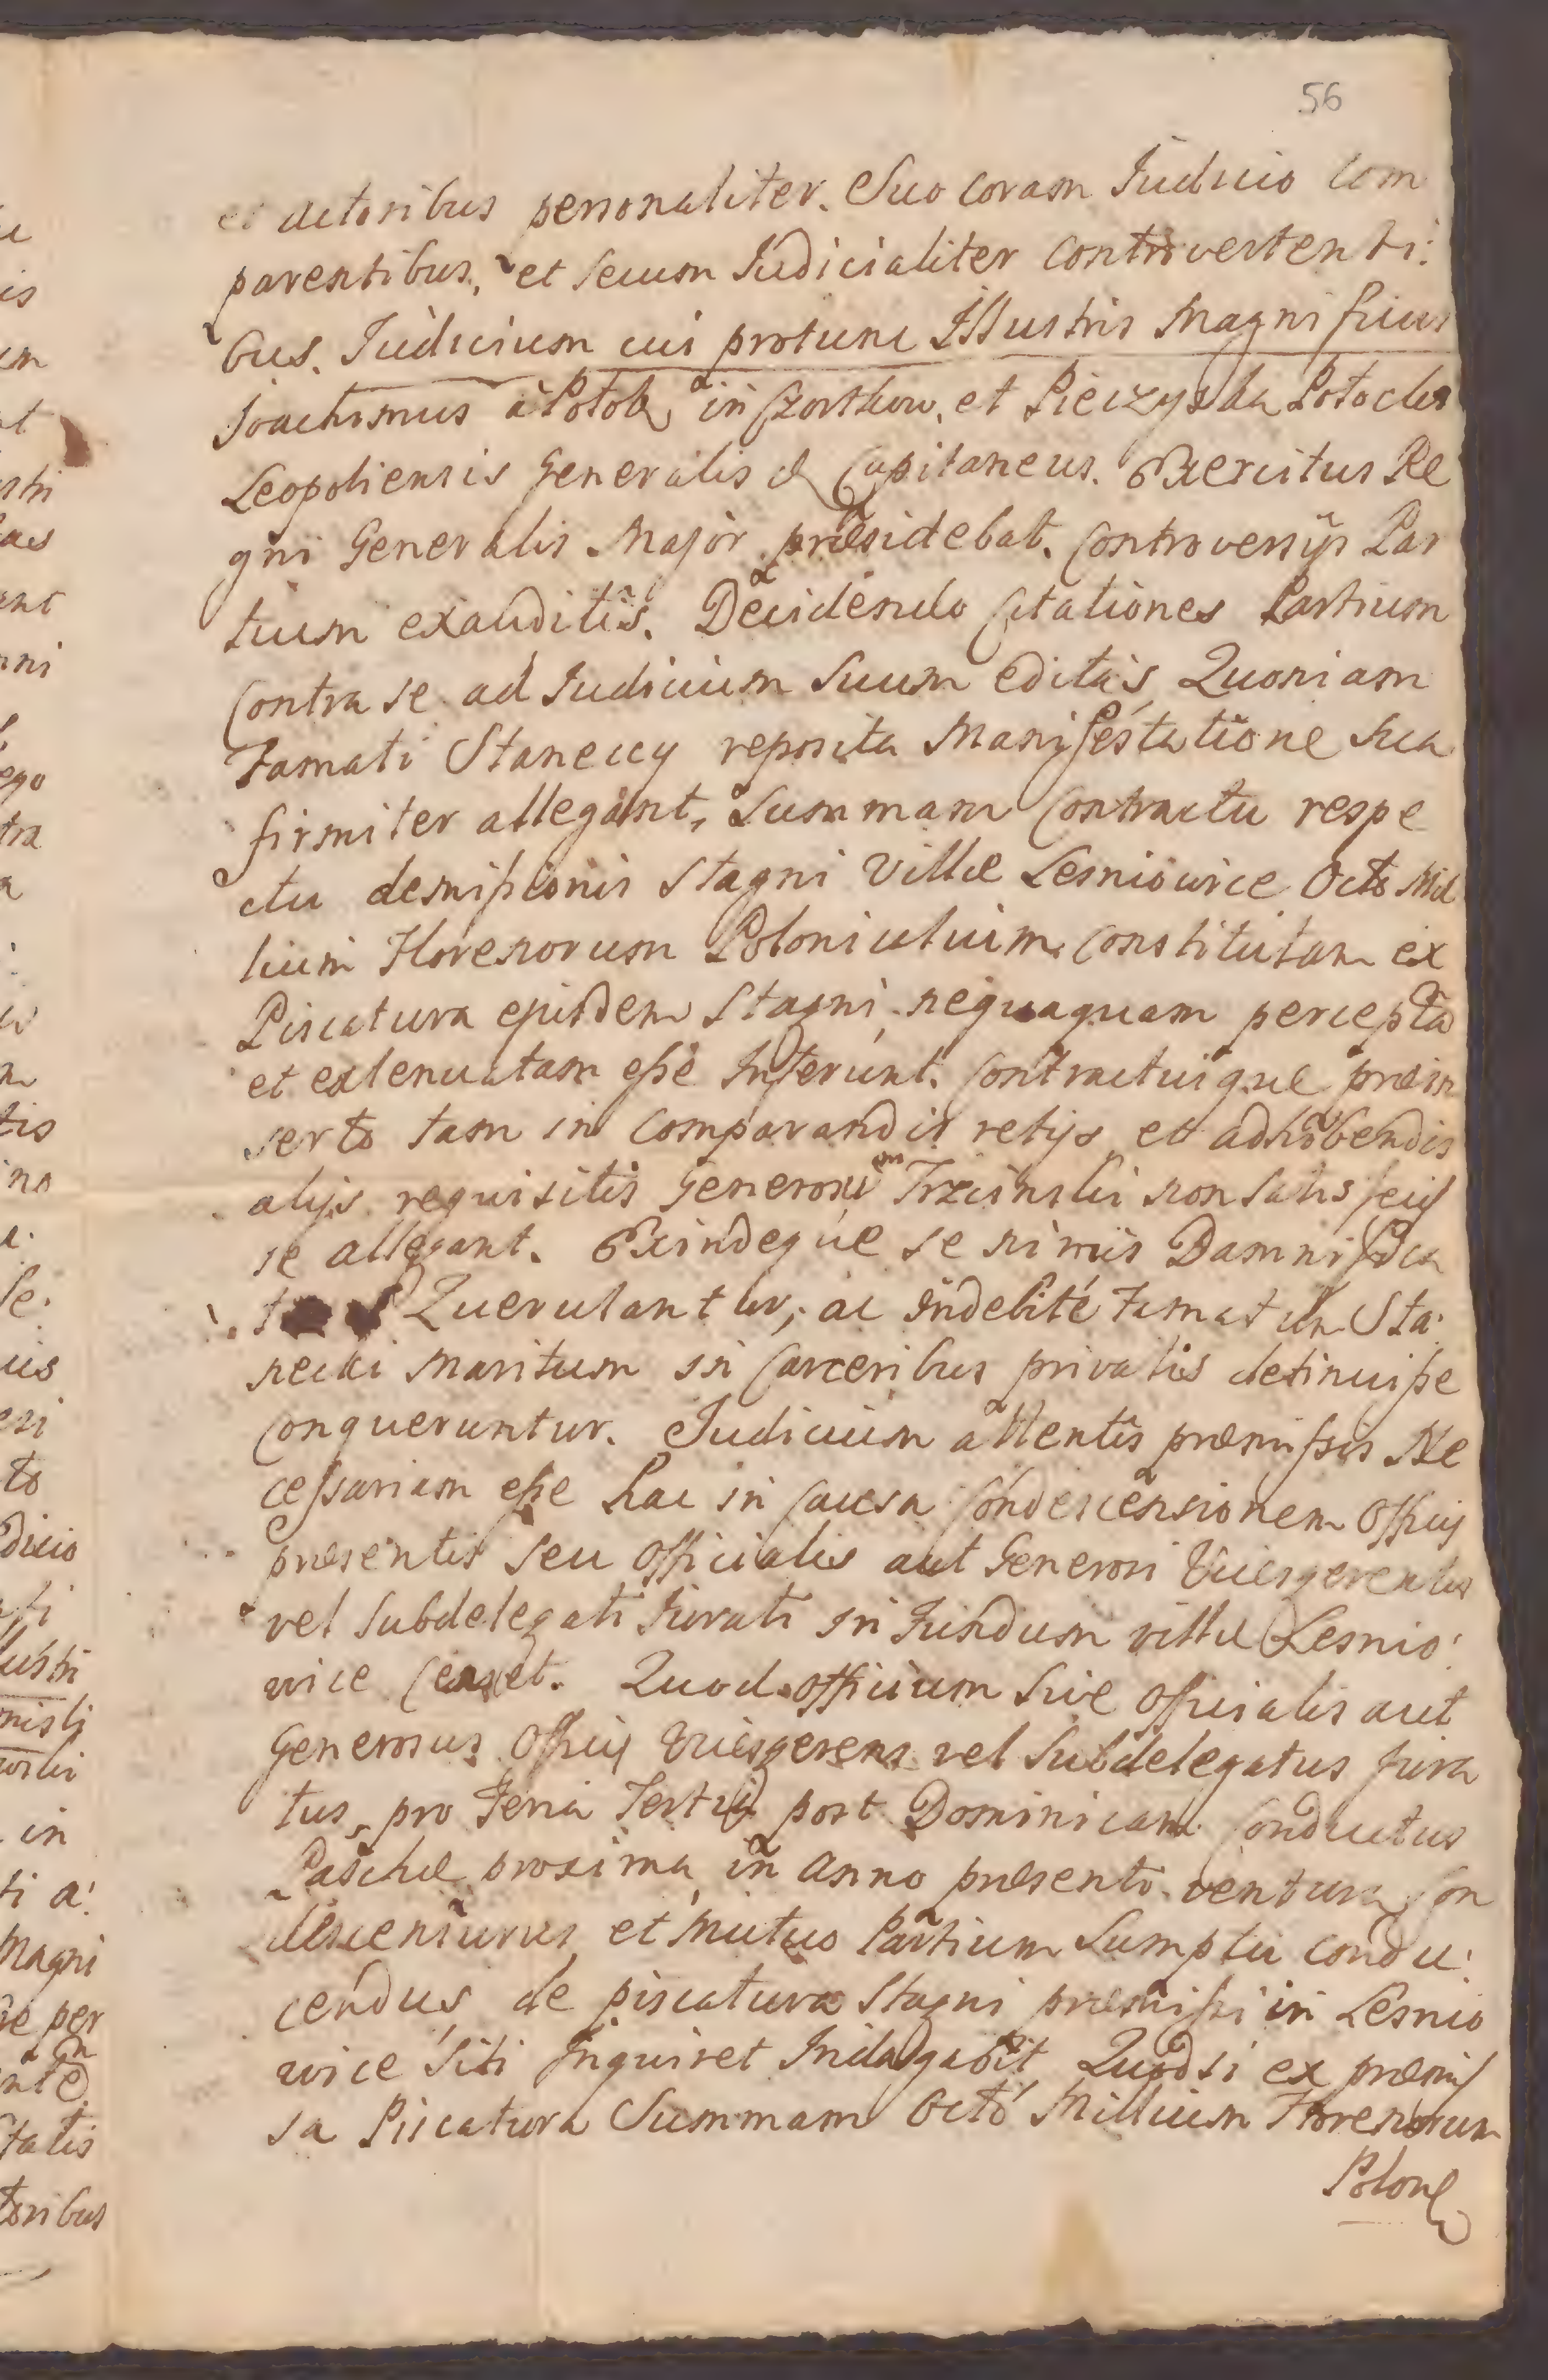 56
et actoribus personaliter. Suo coram Iudicio Com
parentibus, et secum Iudicialiter Controvertenti:
bus. Iudicium cui protunc Illustris Magnificus
Joachimus à Potok in Czortkow, et Pieczyska Potocki
Leopoliensis Generalis & Capitaneus. Exercitus Re
gni Generalis Major præsidebat. Controversijs Par
tium exauditis. Decidendo Citationes Partium
Contra se ad Iudicium Suum editas, Quoniam
Famati Staneccy reposita Manifestatione sua
firmiter allegant, Summam Contractu respe
ctu demissionis Stagni Villæ Lesniowice Octo Mil
lium Florenorum Polonicalium constitutam ex
Piscatura ejusdem Stagni nequaquam percepta
et extenuatam esse Inferunt. Contractuique præin
serto tam in Comparandis retijs et adhibendis
alijs requisitis Generosum Trzcinski non Satisfecis
se allegant. Exindeque se nimis Damnifica
Querulantur, ac indebité Famatum Sta:
necki Maritum in Carceribus privatis detinuisse
Conqueruntur. Iudicium attentis præmissis Ne
cessariam esse hac in Causa Condescensionem Officij
præsentis seu Officialis aut Generosi Vicesgerentis
vel Subdelegati Iurati in Fundum villæ Lesnio:
wice Censet. Quod officium Sive Officialis aut
Generosus Officij Vicesgerens vel Subdelegatus Jura
tus, pro Feria Tertia post Dominicam Conductus
Paschæ proxima in Anno præsenti ventura Con
descensurus et Mutuo Partium Sumptu condu:
cendus de piscatura Stagni præmissi in Lesnio
wice Siti Inquiret Indagabit Quodsi ex præmis
sa Piscatura Summam Octo Millium Florenorum
Polonl